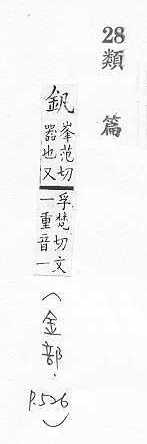 28類篇
釩
峯范切
器也又
孚梵切文
一重音一
(金部. P.526)